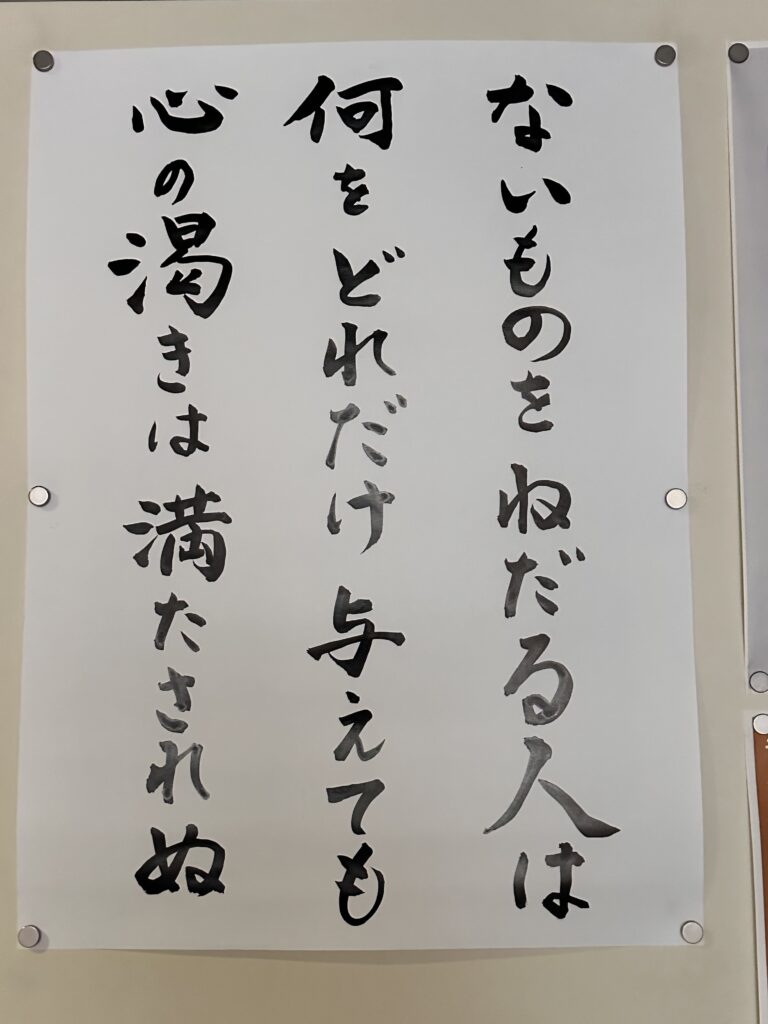 ないものを ねだる人は
何を どれだけ 与えても
心の渇きは 満たされぬ